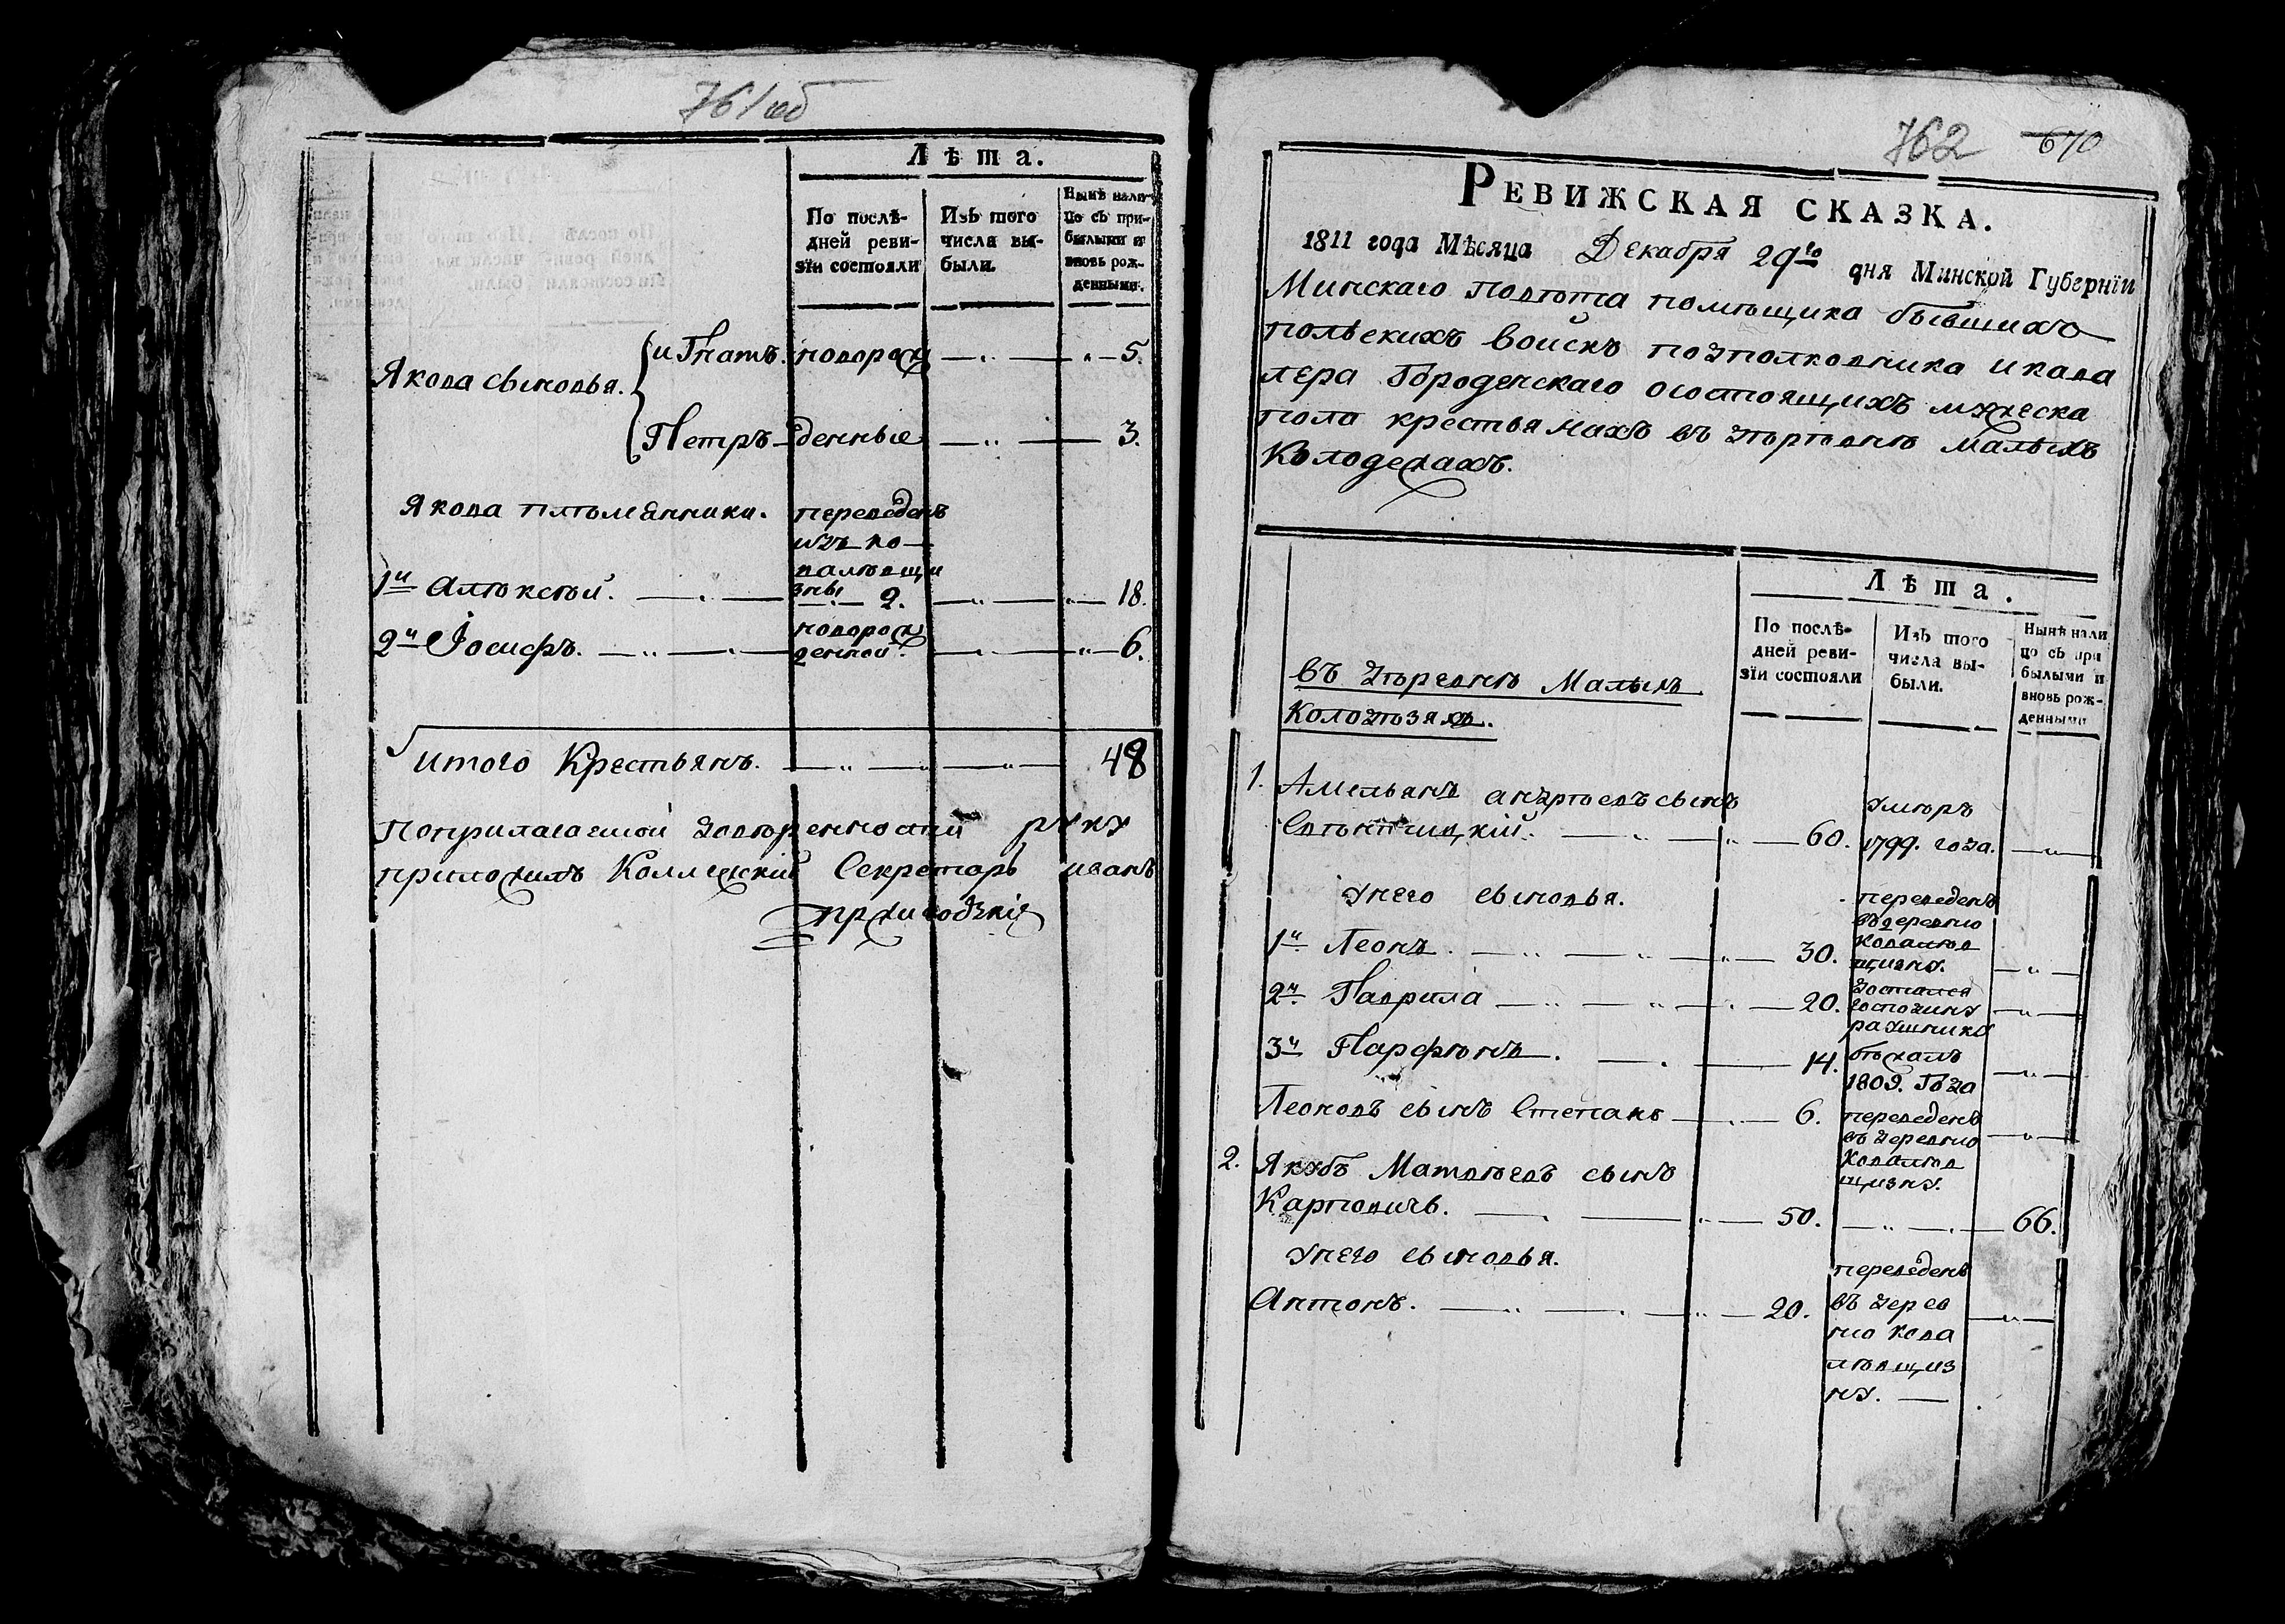 761об
Лѣта.
По послѣ-
дней реви-
зїи состояли
Изъ того
числа вы-
были.
Нынѣ нали-
цо съ при-
былыми и
вновь рож-
денными.
Якова сыновья.
игнатъ. новорож 5.
Петръ денные 3.
Якова плѣмянники. переведенъ
изъ ко
валѣвщи
1й Алѣксѣй. зны 2. 18.
2й Іосифъ. новорож
денной. 6.
итого Крестьянъ. 48
Поприлагаемой довѣренности руку
приложилъ Коллежскій Секретарь иванъ
762 670
Ревижская сказка.
1811 года Мѣсяца Декабря 29го дня Минской Губернїи
Минскаго повѣта помѣщика бывшихъ
польскихъ войскъ подполковника икава
лера Городенскаго осостоящихъ мужеска
пола крестьянахъ въ дѣрѣвнѣ малыхъ
Колодежахъ.
Лѣта.
По послѣ-
дней реви-
зїи состояли
Изъ того
числа вы-
были.
Нынѣ нали
цо съ при
былыми и
вновь рож-
денными
въ дѣревнѣ Малыхъ
Колодѣзяхъ.
1. Амельянъ андрѣевъ сынъ умѣръ
60. 1799. года.
Унего сыновья. переведенъ
въдеревню
1й Леонъ. 30. Ковалѣв
щизну.
2й Гаврила 20. Достался
господину
3й Парфѣнъ. 14. бѣжалъ
1809. Года
Леоновъ сынъ Степанъ 6. переведенъ
въ деревню
Ковалѣв
щизну.
2. Якубъ Матвѣевъ сынъ
Карповичъ. 50. 66.
Унего сыновья. переведенъ
Антонъ. 20. въ дерев
ню кова
лѣвщиз
ну.